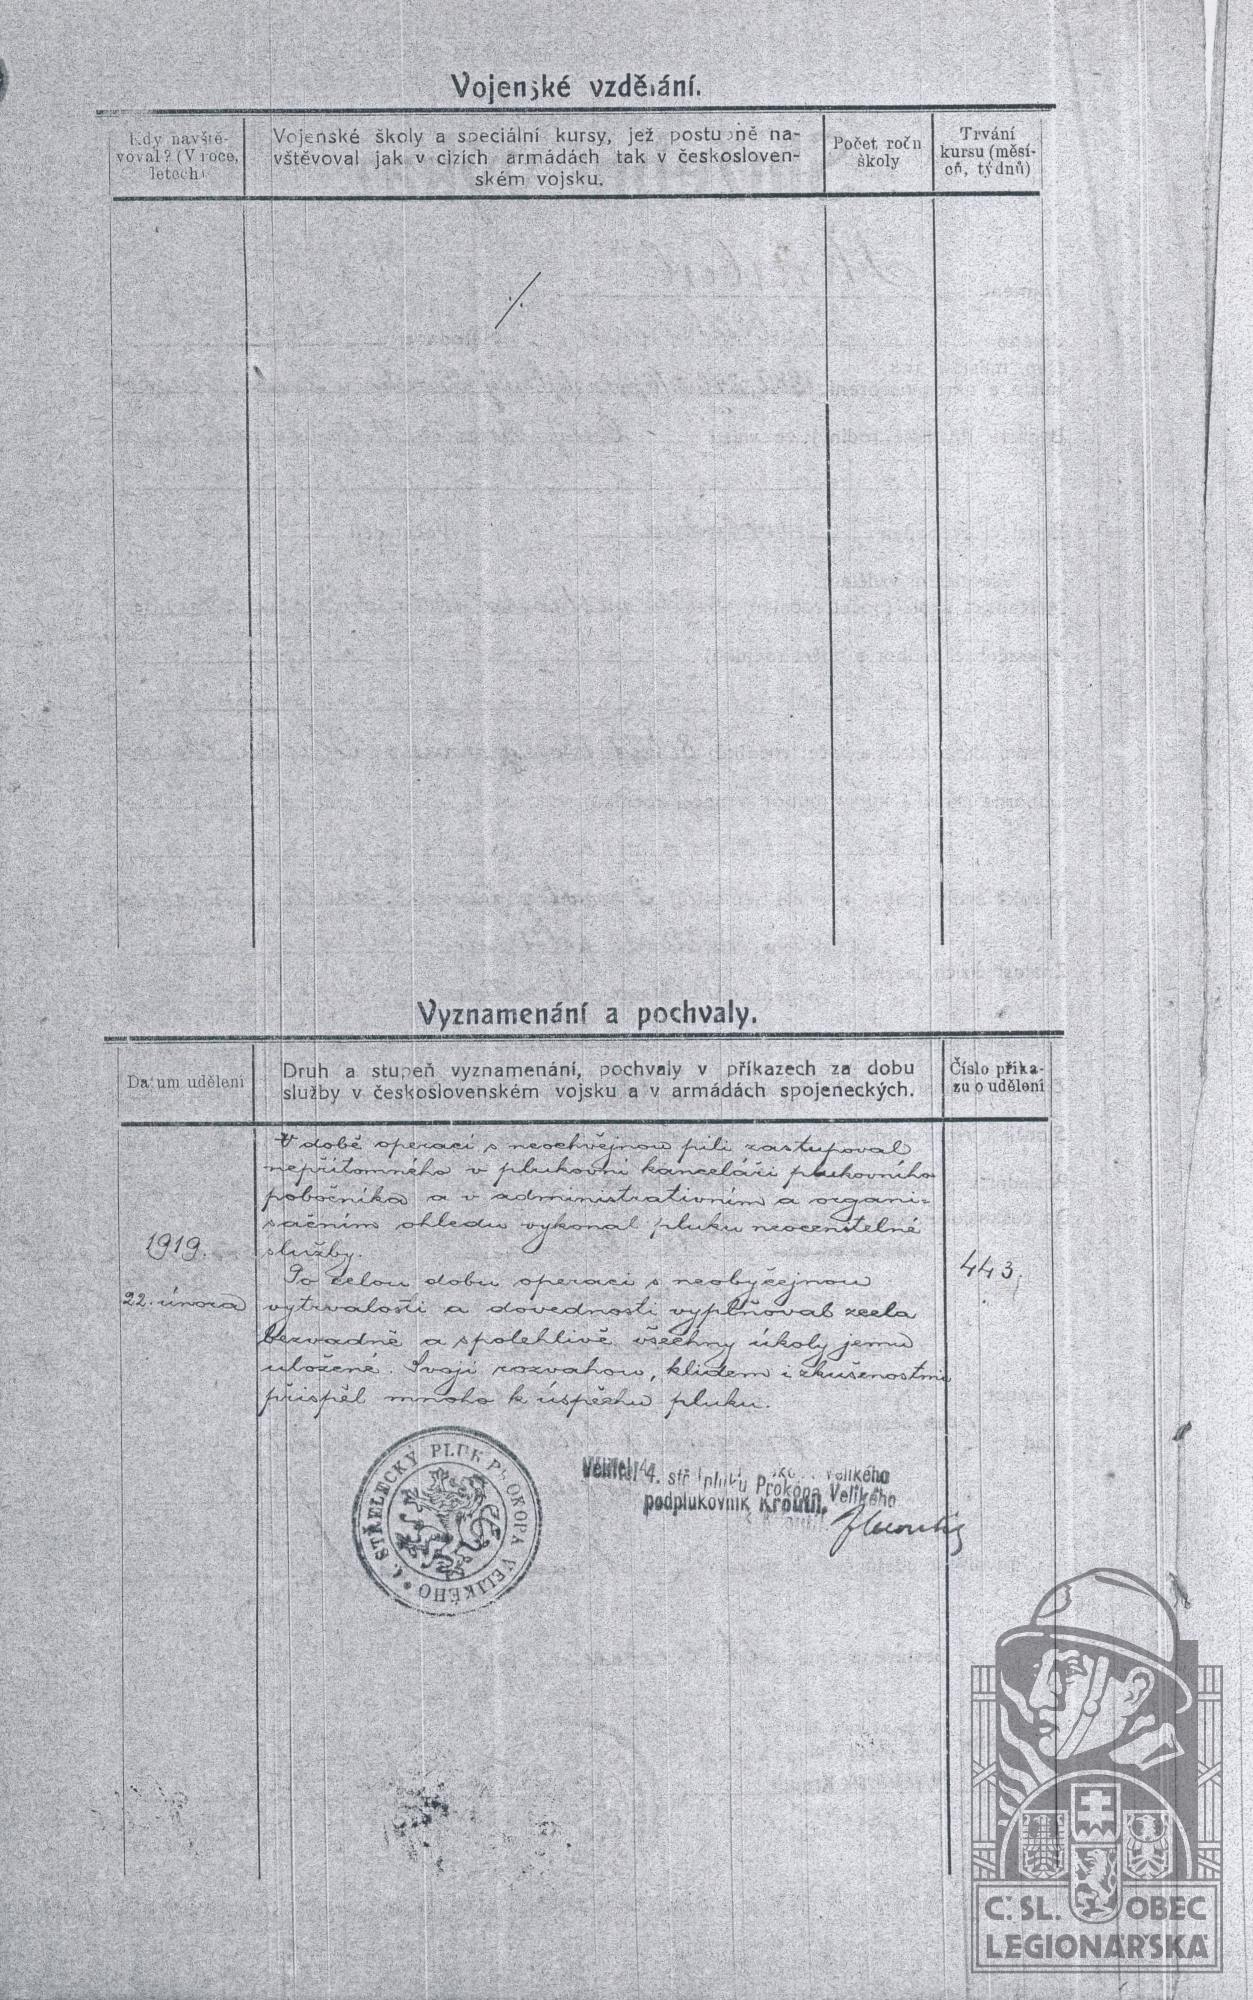 Vojenské vzdělání.
Kdy navště-
voval? (V roce,
letech)
Vojenské školy a speciální kursy, jež postupně na-
vštěvoval jak v cizích armádách tak v českosloven-
ském vojsku.
Počet ročn
školy
Trvání
kursu (měsí-
ců, týdnů)
./.
Vyznamenání a pochvaly.
Datum udělení
Druh a stupeň vyznamenání, pochvaly v příkazech za dobu
služby v československém vojsku a v armádách spojeneckých.
Číslo příka-
zu o udělení
V době operací s neochvějnou pílí zastupoval
nepřítomného v plukovní kanceláři plukovního
pobočníka a v administrativním a organi-
sačním ohledu vykonal pluku neocenitelné
služby.
1919.
22. února
Po celou dobu operací s neobyčejnou
vytrvalostí a dovedností vyplňoval zcela
bezvadně a spolehlivě všechny úkoly jemu
uložené. Svojí rozvahou, klidem i zkušenostmi
přispěl mnoho k úspěchu pluku.
443.
STŘELECKÝ PLUK PROKOPA VELIKÉHO
Velitel 4. stř. pluku Prokopa Velikého
podplukovník Kroutil,
Č. SL. OBEC
LEGIONÁŘSKÁ